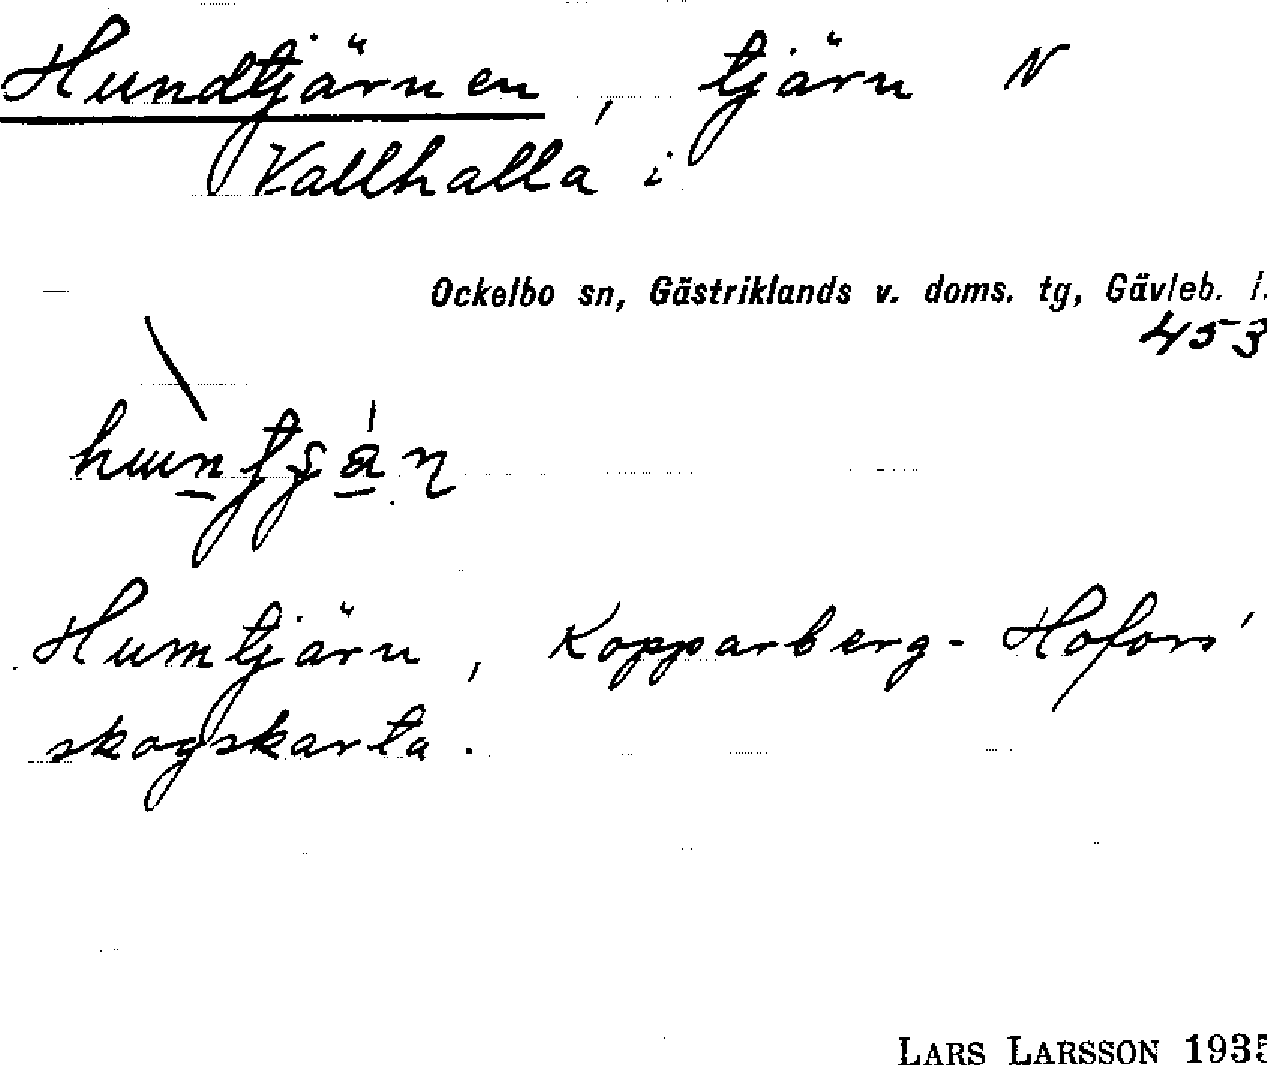 Hundtjärnen, tjärn N
Vallhalla i
Ockelbo sn, Gästriklands v. doms. tg, Gävleb. l.
453
Humtjärn, Kopparberg-Hofors'
skogskarta.
LARS LARSSON 1935